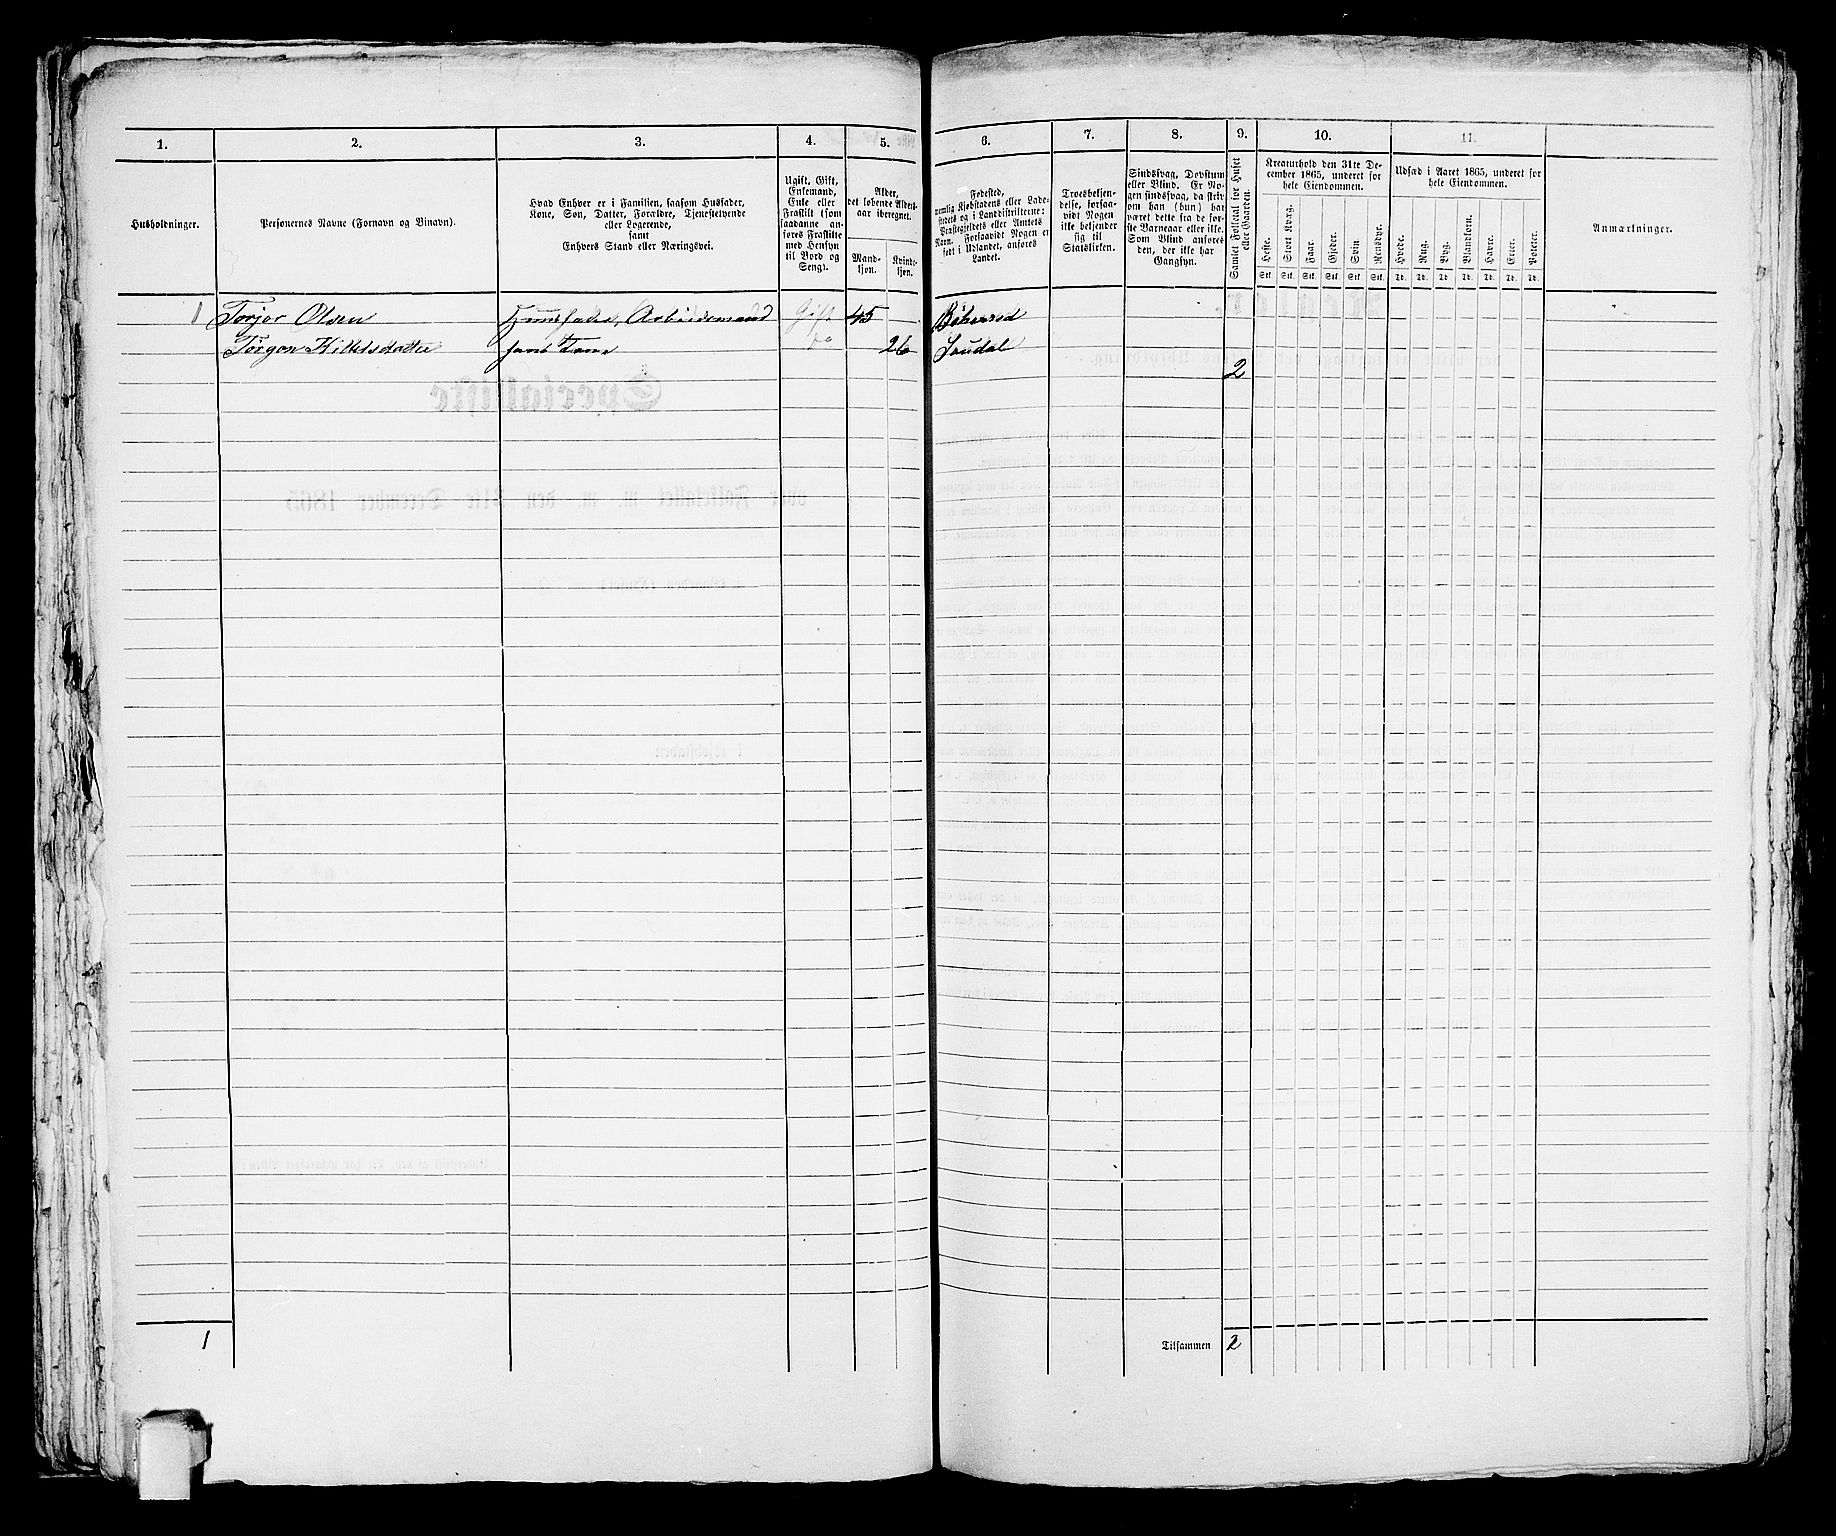 1. 2. 3. 4. 5. 6. 7. 8. 9. 10. 11.
Husholdninger.
Personernes Navne (Fornavn og Binavn).
Hvad Enhver er i Familien, saasom Husfader,
Kone, Søn, Datter, Forældre, Tjenestetyende
eller Logerende,
samt
Enhvers Stand eller Næringsvei.
Ugift, Gift,
Enkemand,
Enke eller
Fraskilt (som
saadanne an-
føres Fraskilte
med Hensyn
til Bord og
Seng).
Alder,
det løbende Alders-
aar iberegnet.
Mand-
kjøn.
Kvinde-
kjøn.
Fødested,
nemlig Kjøbstadens eller Lade-
stedets og i Landdistrikterne:
Præstegjeldets eller Amtets
Navn. Forsaavidt Nogen er
født i Udlandet, anføres
Landet.
Troesbekjen-
delse, forsaa-
vidt Nogen
ikke bekjender
sig til
Statskirken.
Sindssvag, Døvstum
eller Blind. Er No-
gen sindssvag, da skriv
om han (hun) har
været dette fra de før-
ste Barneaar eller ikke.
Som Blind anføres
den, der ikke har
Gangsyn.
Samlet Folketal for Huset
eller Gaarden.
Kreaturhold den 31te De-
cember 1865, underet for
hele Eiendommen.
Heste. Stort Kvæg. Faar. Gjeder. Svin Rensdyr.
Stk. Stk. Stk. Stk. Stk. Stk.
Udsæd i Aaret 1865, underet for
hele Eiendommen.
Hvede. Rug. Byg. Blandkorn. Havre. Erter. Poteter.
Td. Td. Td. Td. Td. Td. Td.
Anmærkninger.
1 Torjor Olsen Huusfader, Arbeidsmand Gift 45
Tørgon Killelsdatter hans Kone do 26 Soudal
2
1 Tilsammen 2